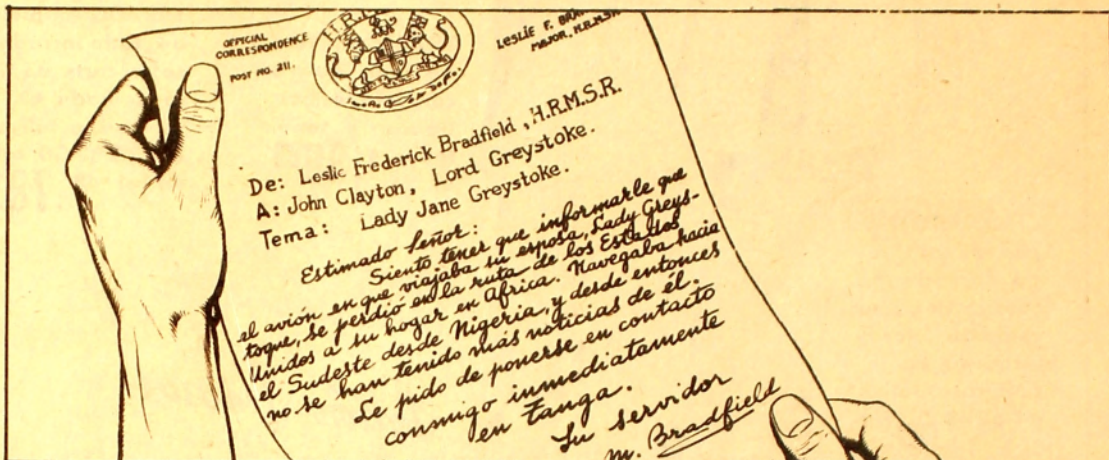 OFFICIAL
CORRESPONDENCE
POST NO. 211.
H.R.
LESLIE F. BRA
MAJOR, H.R.M.S.R.
De: Leslie Frederick Bradfield, H.R.M.S.R.
A: John Clayton, Lord Greystoke.
Tema: Lady Jane Greystoke.
Estimado Señor:
Siento tener que informarle que
el avión en que viajaba su esposa, Lady Greys-
toque, se perdió en la ruta de los Estados
Unidos a su hogar en Africa. Navegaba hacia
el Sudeste desde Nigeria, y desde entonces
no se han tenido más noticias de él.
Le pido de ponerse en contacto
conmigo inmediatamente
en Tanga.
Su servidor
M. Bradfield